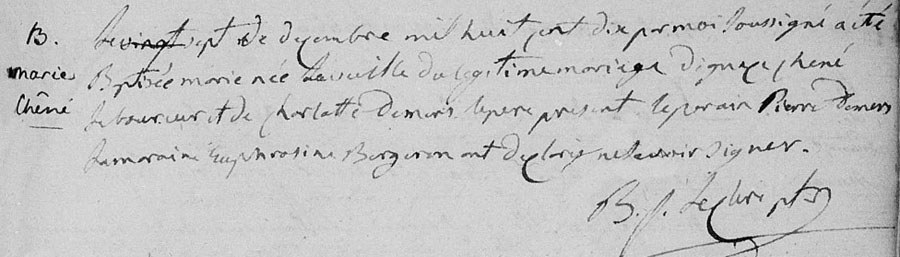 B.
Marie
Chêné
Le vingt sept de decembre mil huit cent dix par moi soussigné a été
Baptisée marie née la veille du legitime mariage d'ignace chêné
laboureur et de charlotte demers. le pere present. le parain Pierre Demers
la maraine Euphrosine Bergeron ont declaré ne savoir signer.
B. J. Leclerc ptre